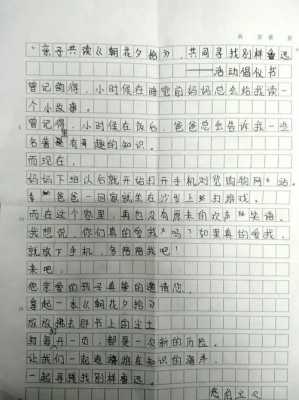 "亲子共读《朝花夕拾》,共同寻找别样鲁迅
——活动倡议书
曾记得,小时候在睡觉前妈妈总会给我读一
个小故事。
曾记得,小时候在饭后,爸爸总会告诉我一些
名著里有趣的知识。
而现在,
妈妈下班以后就开始打开手机浏览购物网站,
爸爸一回家就坐在沙发上打游戏。
而在这个家里,再也没有原来的欢声笑语。
我想说,你们真的爱我吗?如果真的爱我,
就放下手机,多陪陪我吧!
来吧,
您亲爱的孩子真挚的邀请您,
拿起一本《朝花夕拾》
拂去书上的尘土
每一页,都是一次新的历险。
让我们一起遨游在知识的海洋
一起寻找别样鲁迅。